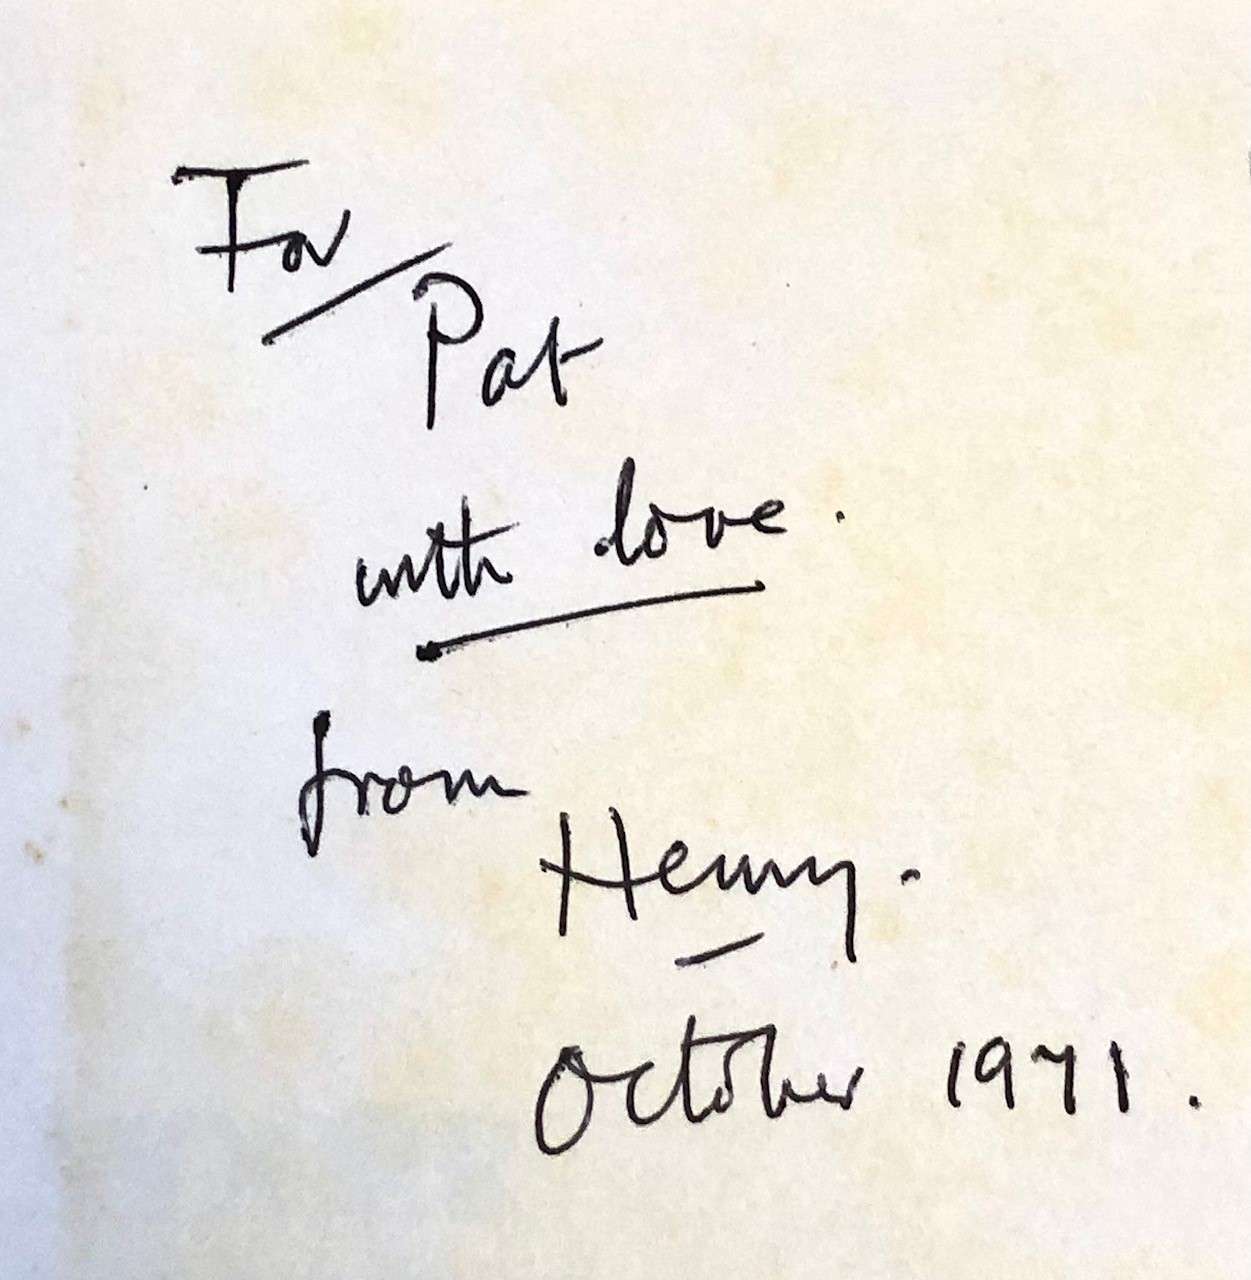 For
Pat
with love.
from
Henry.
October 1971.